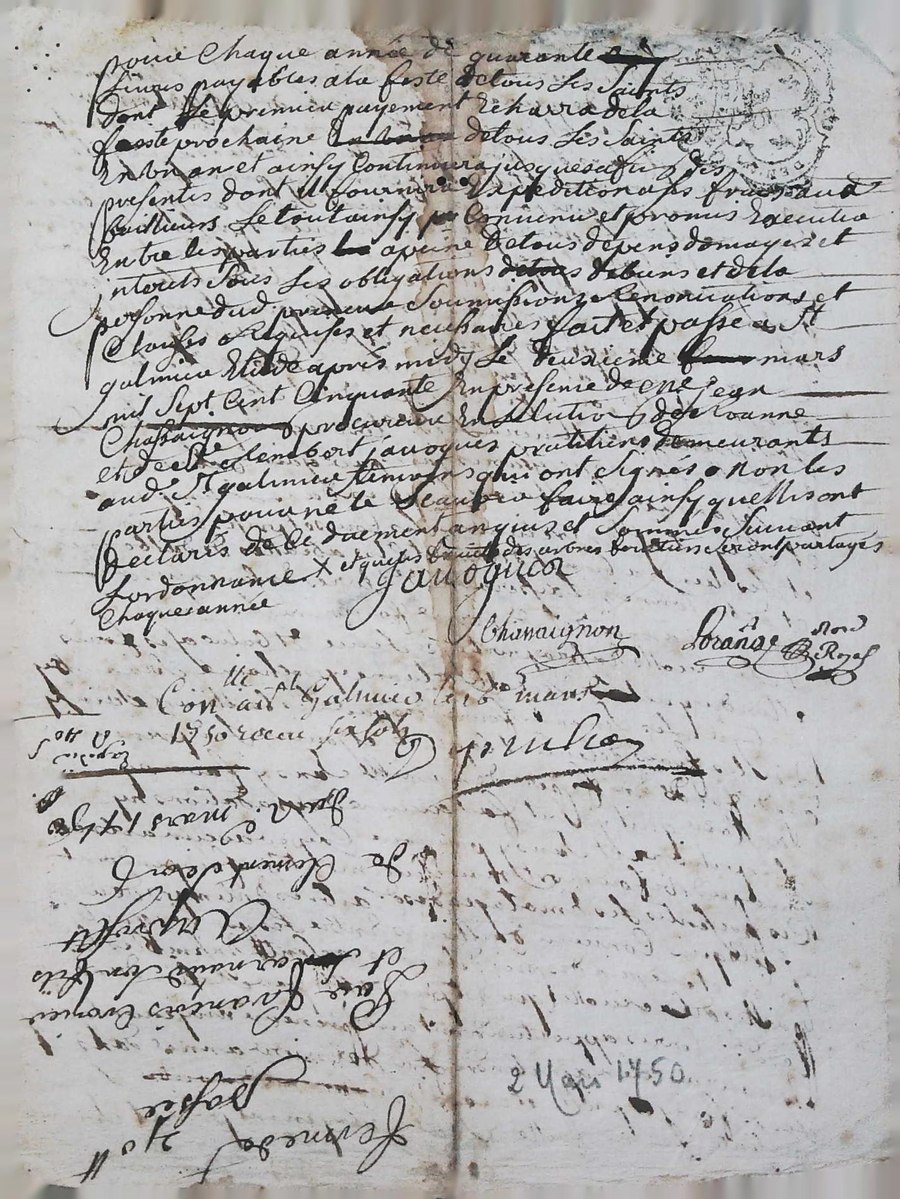 pour Chaque année de quarante
Livres payables a la feste de tous Les Saints
dont Le premier payement Echarra de la
feste prochaine de tous Les Saints
En un an et ainsy Continuera jusques a fin des
presentes dont il fournira Expedition a ses frais aud
bailleurs Le tout ainsy Convenu et promis Executer
Entre les parties a peine de tous depens domages et
interets Sous Les obligations de biens et de la
personne dud preneur Soumissions Renonciations et
Clauses Requises et necessaires fait et passé a St
galmier Etude apres midy Le deuxieme mars
mil Sept Cent Cinquante En presence de me jean
Chassaignon procureur En Election de Roanne
et de Sr Clembert javogues praticiens demeurants
aud St galmier temoins qui ont Signés & Non les
parties pour ne le Scavoir faire ainsy quelles ont
declarés de Ce duement enquis et Sommés Suivant
Lordonnance X et que les fruits des arbres seront partagés
Chaque année
javogues
Chassaignon
Lorange Nore
Royal
Con lle a St Galmier le mars
1750 recu
Ferme de 40 ll
passée
Par François
et Barnard Son fils
A profit
de Clement
Du 2 mars 1750
2 Mars 1750